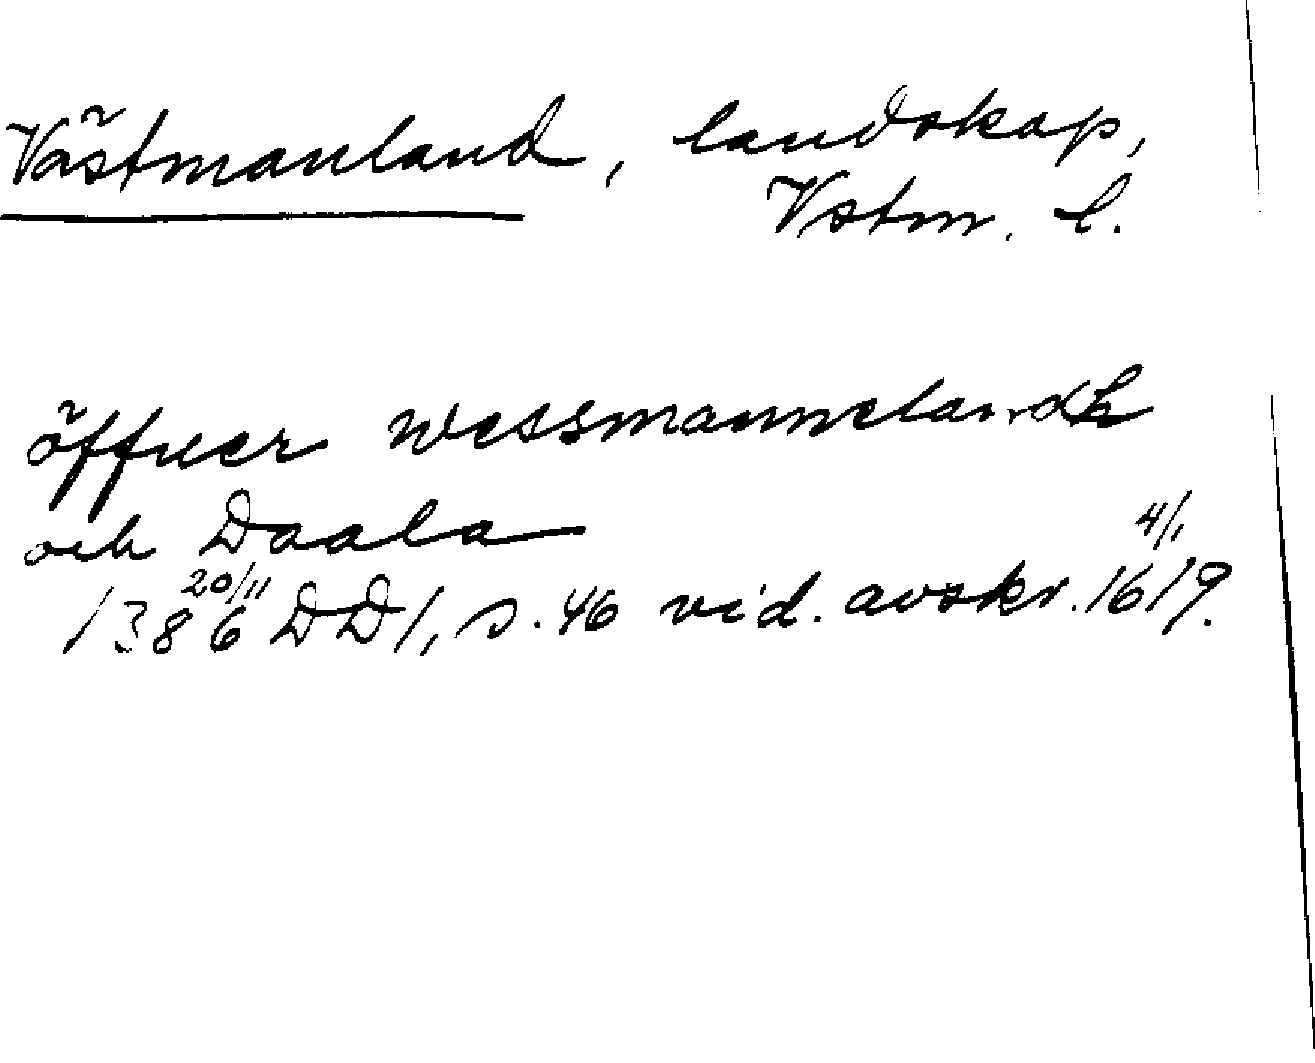 Västmanland, landskap,
Vstm. l.
öffuer wessmannelandh
och Daala
1386 20/11 DD1, s. 46 vid. avskr. 1619 4/1.